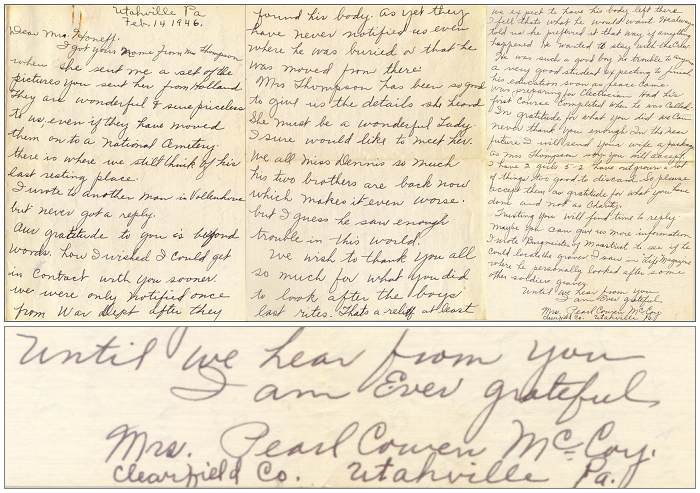 Utahville Pa
Feb. 14 1946.
Dear Mrs. Honeff.
I got your name from Mrs Thompson
when she sent me a set of the
pictures you sent her from Holland
They are wonderful & sure priceless
to us even if they have moved
them on to a National Cemetery
there is where we still think of his
last resting place.
I wrote to another man in Vollenhove
but never got a reply.
Our gratitude to you is beyond
words. How I wished I could get
in Contact with you sooner.
we were only notified once
from War Dept after they
found his body. As yet they
have never notified us even
where he was buried or that he
was moved from there
Mrs Thompson has been so good
to give us the details she heard
She must be a wonderful Lady
I sure would like to meet her.
We all miss Dennis so much
his two brothers are back now
which makes it even worse.
but I guess he saw enough
trouble in this world.
We wish to thank you all
so much for what you did
to look after the boys
last rites. Thats a relief at least
we expect to have his body left there
I feel thats what he would want
told us he preferred it that way if anything
happened. He wanted to stay with the
He was such a good boy no trouble to anyone
a very good student expecting to finish
his education soon as peace came
was preparing for Electrician had his
first Course Completed when he was Called.
In gratitude for what you did we can
never thank you enough. In the near
future I will send your wife a package
as Mrs Thompson says you will accept.
I have 2 girls 5-2 have outgrown a lot
of things too good to discard. So please
accept them as gratitude for what you have
done and not as Charity.
Trusting You will find time to reply
Maybe You can give us more information
I wrote Burgmeister of Mastricht to see if he
could locate the graves I saw in Life Magazine
where he personally looked after some
other soldier graves
Until We hear from you
I am Ever grateful
Mrs. Pearl Cowen McCoy
Clearfield Co. Utahville Pa
Until we hear from you
I am Ever grateful
Mrs. Pearl Cowen McCoy.
Clearfield Co. Utahville Pa.